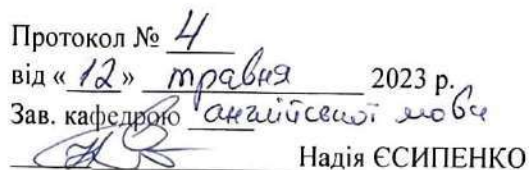 Протокол № 4
від « 12 » травня 2023 р.
Зав. кафедрою англійської мови
Надія ЄСИПЕНКО